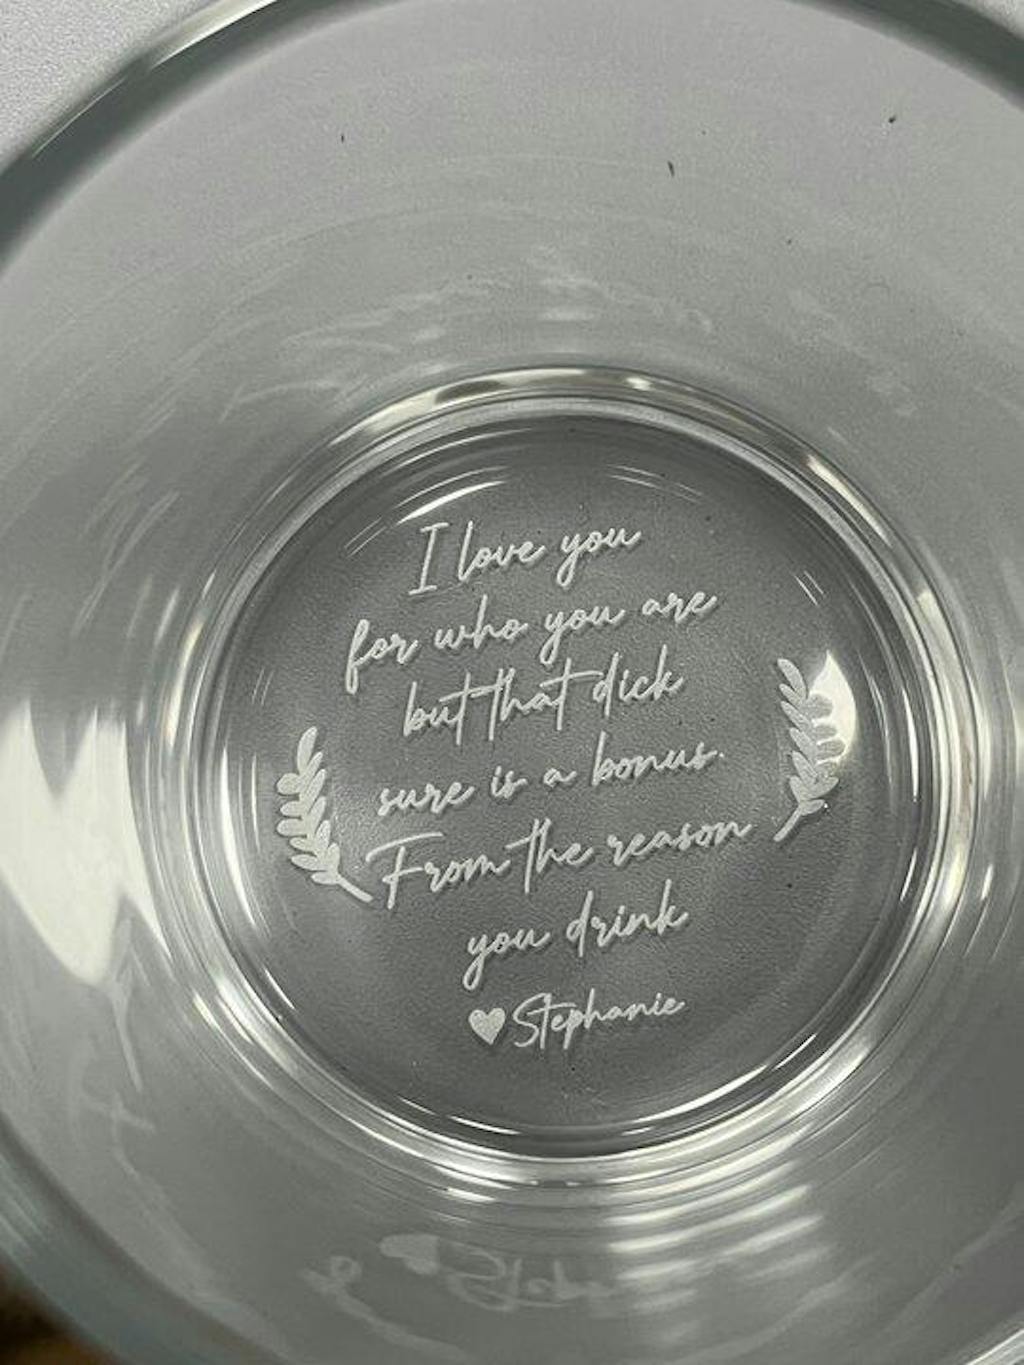 I love you
for who you are
but that dick
sure is a bonus.
From the reason
you drink
♥Stephanie